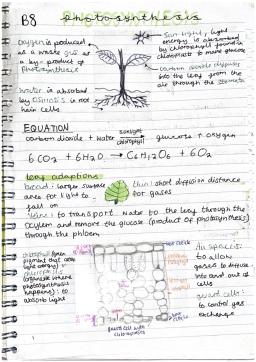 B8 photosynthesis
oxygen is produced
as a waste gas as
a by-product of
photosynthesis
Sun light, light
energy is absorbed
by chlorophyll found in
chloroplast to make glucose
carbon dioxide diffuses
into the leaf from the
air through the stomata
water is absorbed
by osmosis in root
hair cells
EQUATION
carbon dioxide + water sunlight chlorophyll glucose + oxygen
6CO2 + 6H2O → C6H12O6 + 6O2
leaf adaptions
broad: larger surface
area for light to
fall on
thin: short diffusion distance
for gases
veins: to transport water to the leaf through the
xylem and remove the glucose (product of photosynthesis)
through the phloem
chlorophyll (green
pigment that
light energy)
chloroplasts
(organelle where
photosynthesis
happens): to
absorb light
Air spaces:
to allow
gases to diffuse
into and out of
cells
guard cells:
to control gas
exchange
guard cell with
chloroplasts